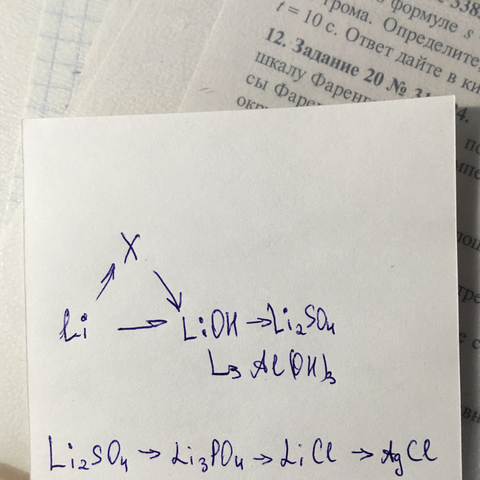 формуле s
трома. Определите,
t = 10 с. Ответ дайте в ки
12. Задание 20 №
шкалу Фаренг
сы Фарен
X
Li → LiOH → Li₂SO₄
L₃ Al(OH)₃
Li₂SO₄ → Li₃PO₄ → LiCl → AgCl